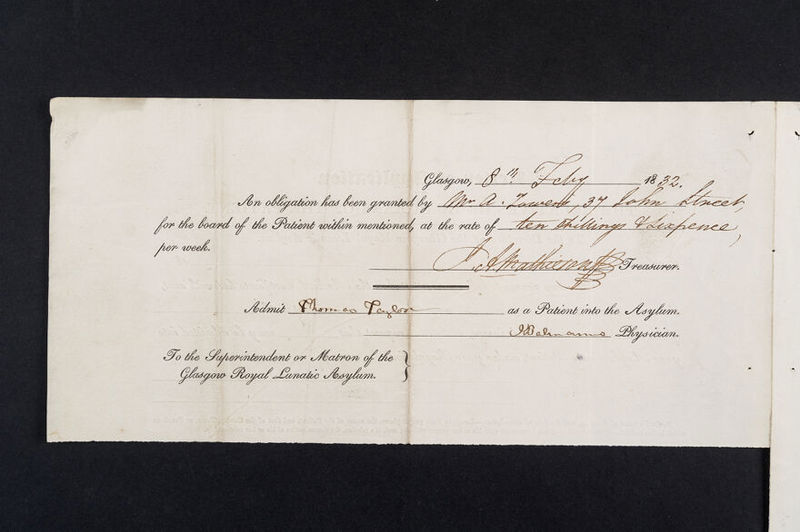 Glasgow, 8th Feby 1832.
An obligation has been granted by Mr A. Towers, 37 John Street,
for the board of the Patient within mentioned, at the rate of ten Shillings & Sixpence,
per week.
J. A. Mathieson Treasurer.
Admit Thomas Taylor as a Patient into the Asylum.
Physician.
To the Superintendent or Matron of the
Glasgow Royal Lunatic Asylum.